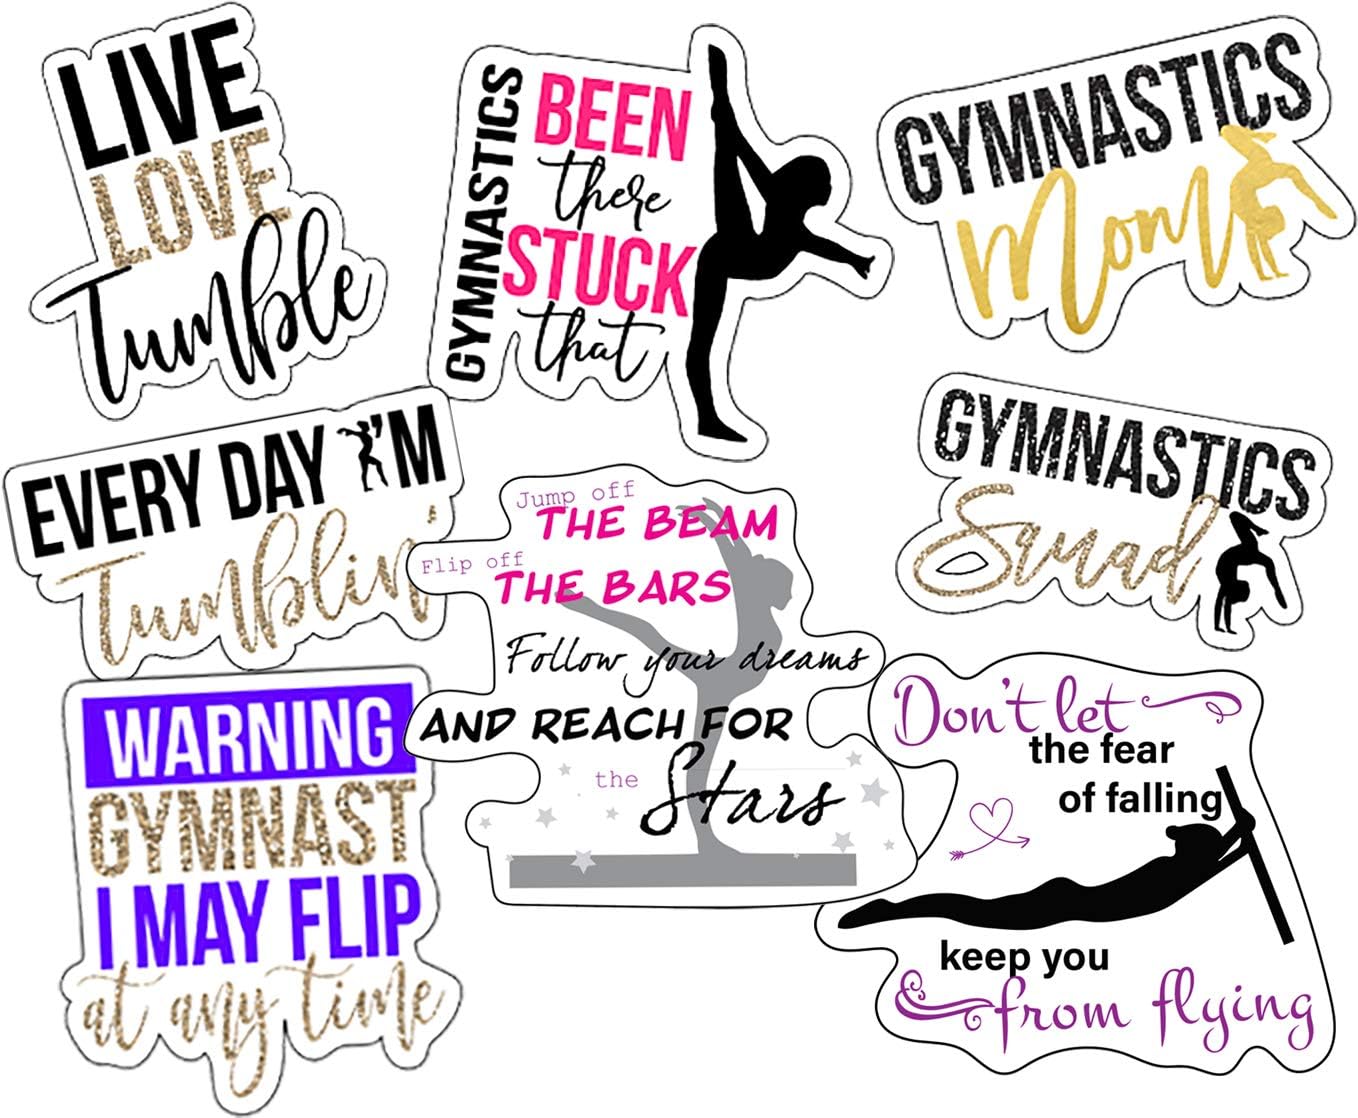 LIVE
LOVE
Tumble
GYMNASTICS
BEEN
there
STUCK
that
GYMNASTICS
Mom
EVERY DAY I'M
Tumblin'
GYMNASTICS
Squad
Jump off
THE BEAM
Flip off
THE BARS
Follow your dreams
AND REACH FOR
the
Stars
WARNING
GYMNAST
I MAY FLIP
at any time
Don't let
the fear
of falling
keep you
from flying